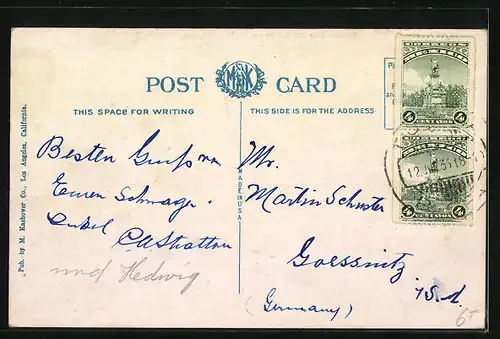 POST CARD
M.K.
THIS SPACE FOR WRITING
THIS SIDE IS FOR THE ADDRESS
Pub. by M. Kashower Co., Los Angeles, California.
MADE IN U.S.A.
Besten Gruß von
Euren Schwager
Onkel
und Hedwig
Mr.
Martin Schuster
Goessnitz
S.A.
(Germany)
4 CENTAVOS 4
4 CENTAVOS 4
12